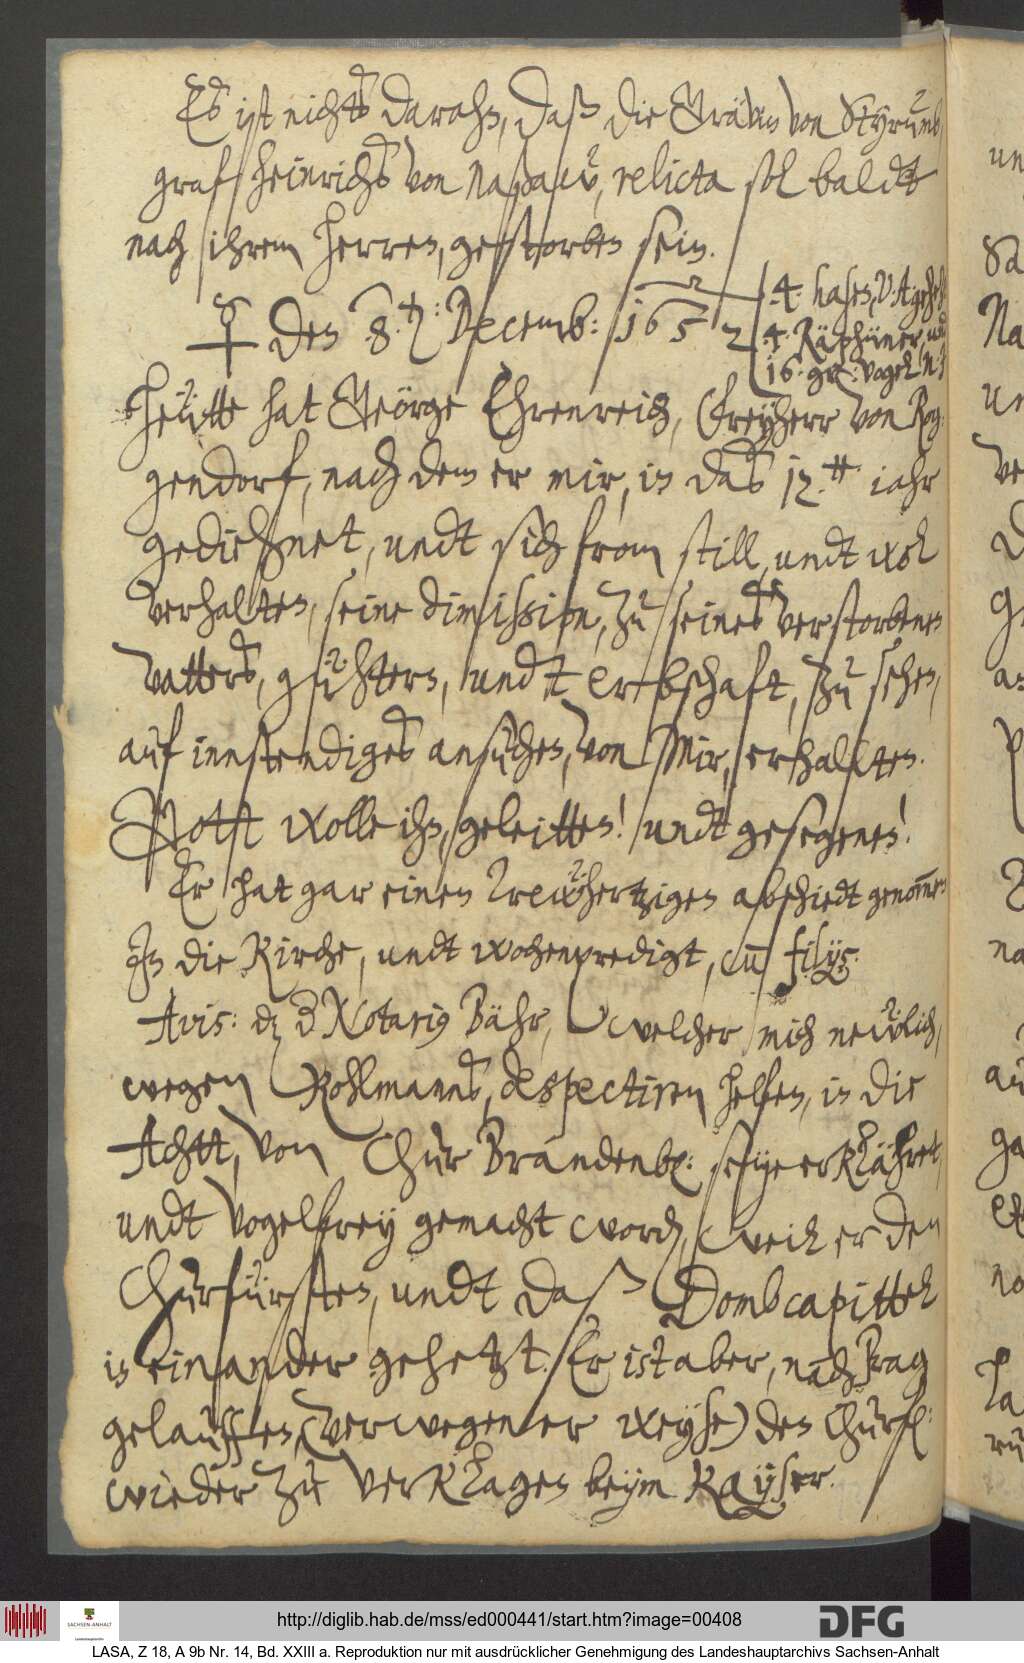 Es ist nichts darahn, daß die Grävin von Styrumb,
graf Heinrichs von Naßaw, relicta sol baldt
nach ihrem Herren, gestorben sein.
den 8. Decemb: 1652
4 hasen,
4. Räphüner, undt
16 große Vogel
Heütte hat Geörge Ehrenreich, Freyherr von Rog-
gendorf, nach dem er mir, in das 12. iahr
gediehnet, undt sich from still, undt wol
verhalten, seine dimission, zu seines verstorbenen
Vatters, gühtern, undt erbschaft, zu sehen,
auf innstendiges ansuchen, von Mir, erhallten.
Gott wolle ihn, geleitten! undt gesegenen!
Er hat gar einen Trewhertzigen abschiedt genommen
In die Kirche, undt wochenpredigt, cum filijs.
Avis: daß der Notarius Bähr, welcher mich newlich,
wegen Rohlmanns, despectiren helfen, in die
Achtt, von Chur Brandenburg: seye erklähret,
undt Vogelfrey gemacht worden, weil er den
Churfürsten, undt daß Dombcapittel
in einander gehetzt. Er ist aber, nach Prag
gelauffen, (verwegener weyse) den Churf:
wieder zu verklagen beym Kayser.
un
http://diglib.hab.de/mss/ed000441/start.htm?image=00408
SACHSEN-ANHALT
DFG
LASA, Z 18, A 9b Nr. 14, Bd. XXIII a. Reproduktion nur mit ausdrücklicher Genehmigung des Landeshauptarchivs Sachsen-Anhalt